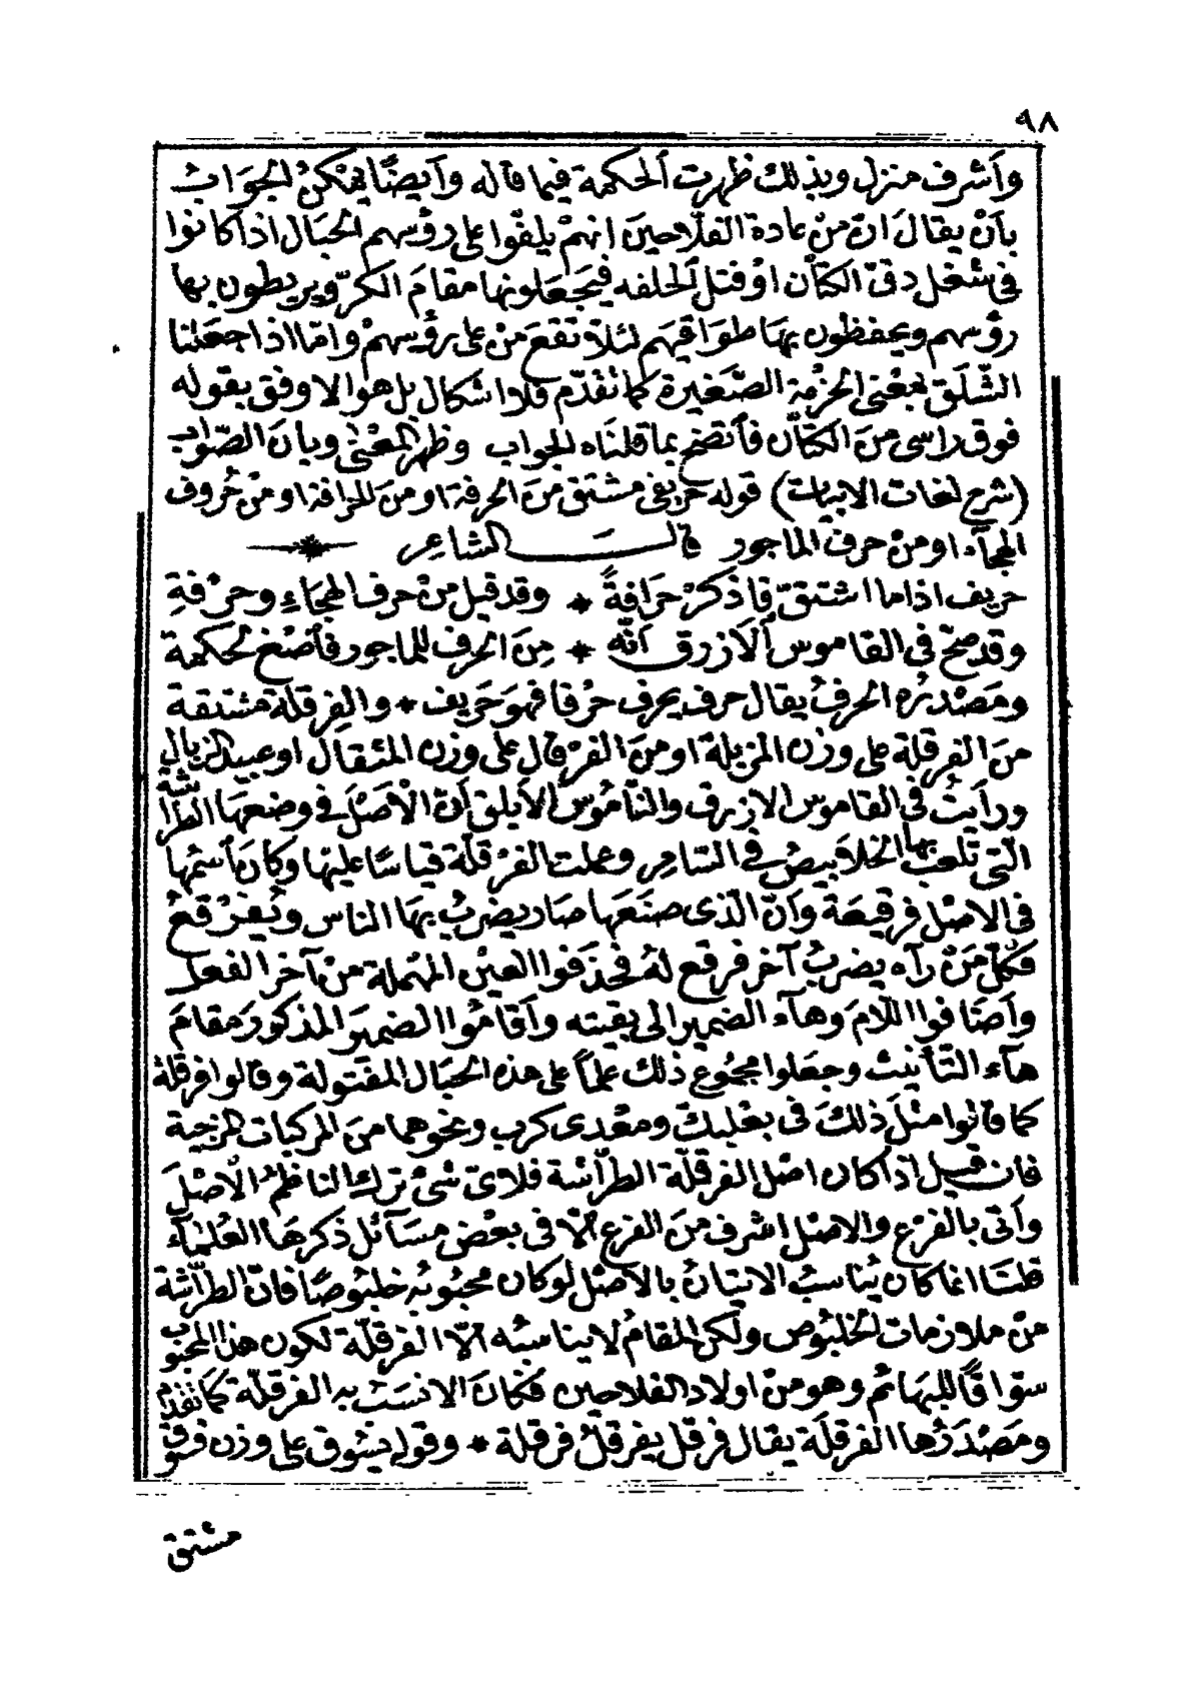 ٩٨
وأشرف منزل وبذلك ظهرت ألحكمة فيما قاله وأيضًا يمكن الجواب
بأنْ يقالَ انّ منْ عادة الفلّاحينَ انهمْ يلفّوا على رؤسهم الحبال اذا كانوا
في شغل دقّ الكتّان اوْ فتل ألحلفه فيجعلونها مقامَ الكرّ ويربطون بها
رؤسهم ويحفظون بها طواقيهم لئلاّ تقعَ منْ على رؤسهمْ وامّا اذا جعلنا
الشّلَق بمعْنى الحزْمة الصّغيرة كما تقدّم فلا اشكال بل هو الاوفق بقوله
فوق راسى منَ الكتّان فأتضح بما قلنَاه الجواب وظهر المعْنى وبان الصّواب
(شرح لغات الابيات) قوله حريفى مشتق منَ الحرفة او منَ الحرافة او منْ حُروف
الهجآء او منْ حرف الماجور قالَ الشاعر
حريف اذا ما اشتقّ فاذكرْ حَرافةً * وقد قيل منْ حرف الهجَاءِ وحرْفةِ
وقد صحّ فى القاموس ألازرق أنّه * مِنَ الحرف للماجور فأصْغ لحكمة
ومَصْدرُه الحرفُ يقال حرف يحرف حرْفا فهوَ حَريف * والفرقلّة مشتقة
منَ الفرقلة على وزن المزبلة او منَ الفرْقال على وزن المثقال او عبيد الزبال
ورأيتُ فى القاموس الازرق والنّاموس الأبلق أنّ الأصْلَ فى وضعهَا الطرّاشة
الّتى تلعبُ بها الخلابيصُ فى السّامر وعملت الفرْقلّة قياسًا عليْها وكانَ أسْمُها
فى الاصْل فرقيعَة وأنّ الّذى صنَعَها صَار يضربُ بهَا الناس ويُفرْقعُ
فكلّ مَنْ رآه يضربُ آخر فرقع لهُ فحذَفوا العينْ المهْملة منْ آخر الفعل
وأضَافوا اللّامَ وهآءَ الضّمير الى بقيته وأقامُوا الضميرَ المذكورَ مقامَ
هآء التأنيث وجعَلوا مجمُوعَ ذلك علماً على هذه الحبَال المفتولة وقالوا فرقلّة
كما قالوا مثلَ ذلكَ فى بعْلبكّ ومعْدى كرب ونحوهما منَ المركبات المزجية
فان قيل اذا كان اصْل الفرقلّة الطرّاشة فلاىّ شئ ترك الناظمُ الأصْلَ
وأتى بالفرْع والاصْل اشرف منَ الفرع ألّا فى بعْض مسَآئل ذكرهَا العُلمَآء
قلنَا انما كان يُناسبُ الاتيانُ بالأصْل لو كان محبُوبُه خلبُوصًا فانّ الطرّاشة
منْ ملازمات الخلبُوص ولكن المقامُ لا يناسبُه ألّا الفرقلّة لكون هذا المحبُوب
سوّاقًا للبهَائم وهو منْ اولاد الفلاحين فكانَ الانسَبُ به الفرقلّة كمَا تقدّم
ومَصْدَرُها الفرقلَة يقال فرقل يفرقلُ فرقلة * وقوله يسُوق على وزن فسوق
مشتق